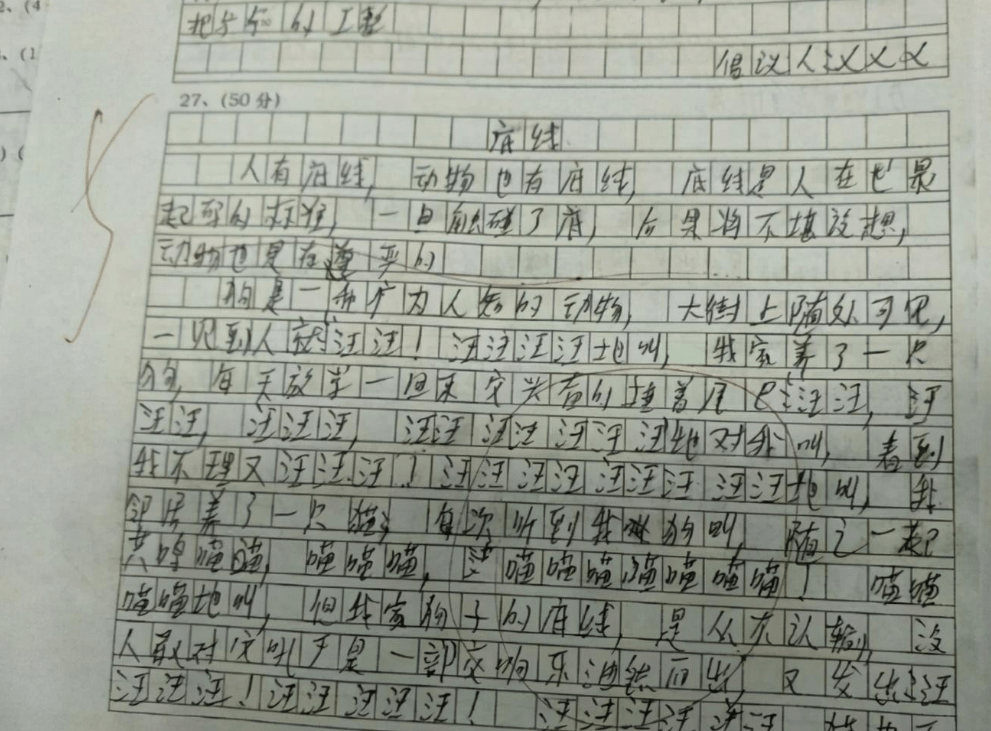 的工整
倡议人:XXX
27、(50分)
底线
人有底线,动物也有底线,底线是人在世最
起码的标准,一旦触碰了底,后果将不堪设想,
动物也是有尊严的
狗是一种广为人知的动物,大街上随处可见,
一见到人就:汪汪!汪汪汪汪地叫,我家养了一只
狗,每天放学一回来它兴奋的摇着尾巴:汪汪,汪
汪汪,汪汪汪,汪汪汪汪汪汪汪地对我叫,看到
我不理又汪汪汪!汪汪汪汪汪汪汪汪汪地叫,我
邻居养了一只猫,每次听到我家狗叫,随之一起
共鸣喵喵,喵喵喵,喵喵喵喵喵喵喵!喵喵
喵喵地叫,但我家狗子的底线,是从不认输,没
人敢对它吼于是一部交响乐油然而出,又发出:汪
汪汪汪!汪汪汪汪汪!汪汪汪汪汪汪